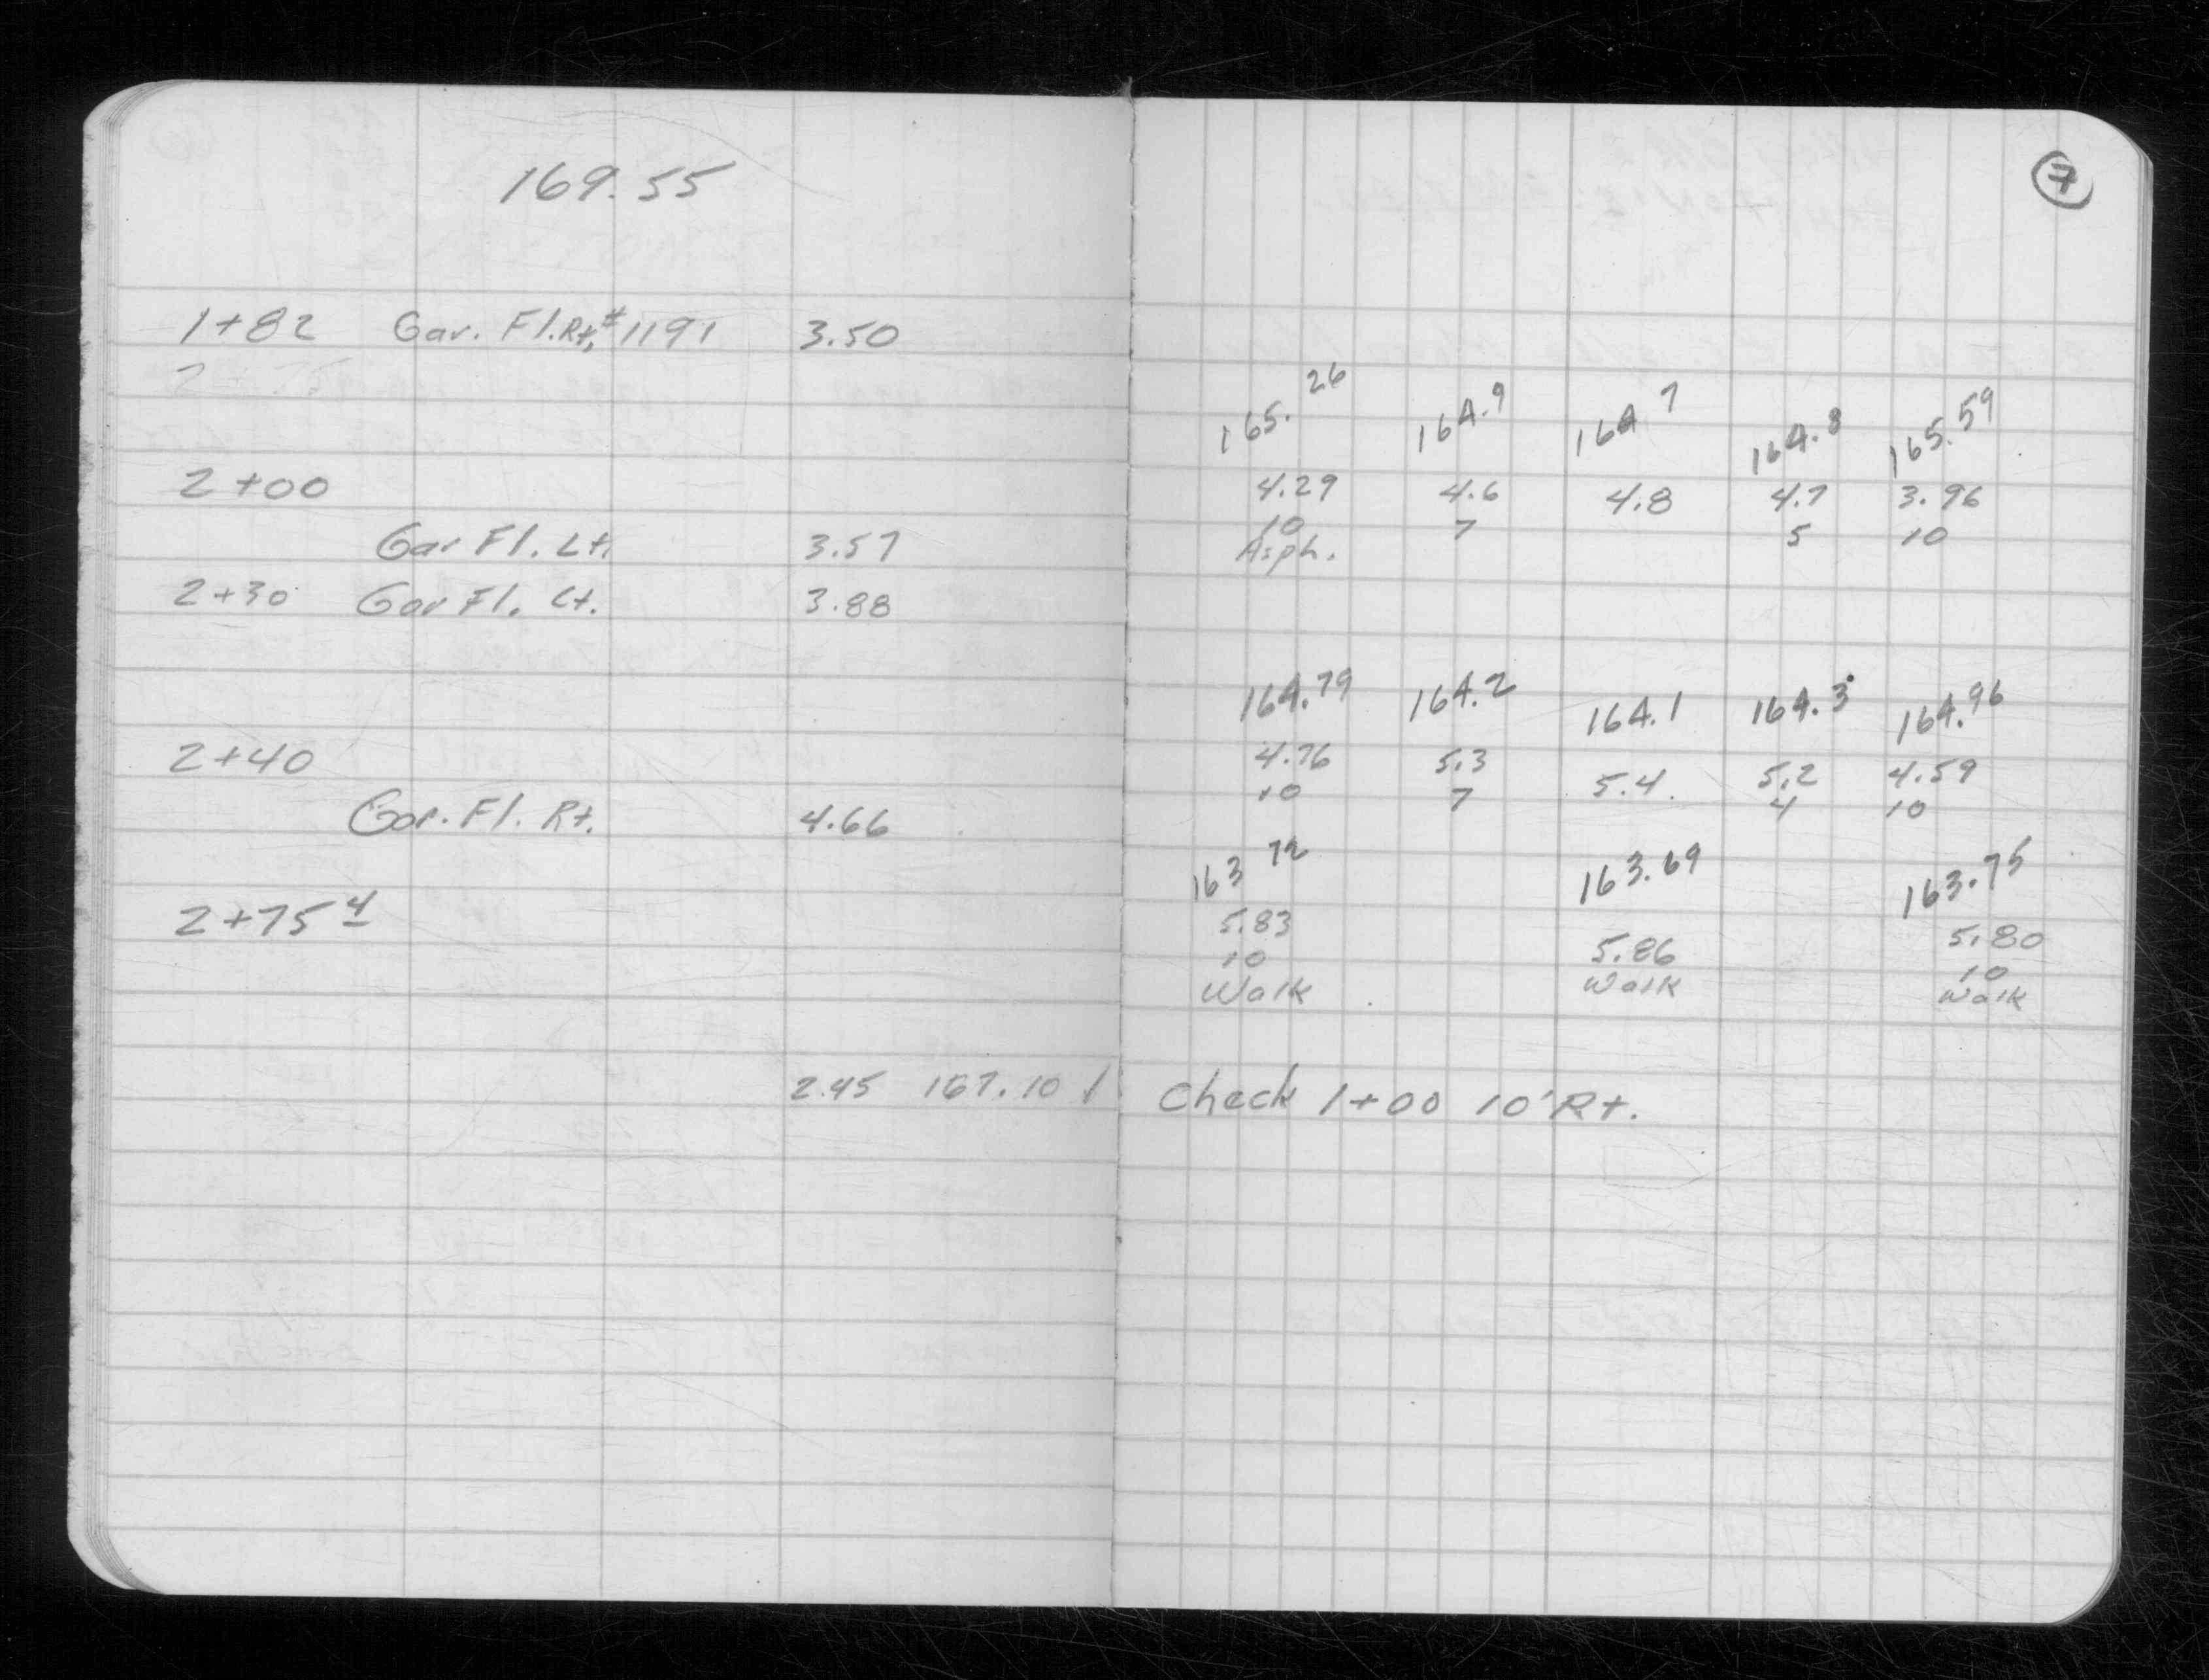 169.55
7
1+82 Gar. Fl. Rt, #1191 3.50
165.26 164.9 164 7 164.8 165.59
2+00 4.29 4.6 4.8 4.7 3.96
10 7 5 10
Gar Fl. Lt. 3.57 Asph.
2+30 Gar Fl. Lt. 3.88
164.79 164.2 164.1 164.3 164.96
2+40 4.76 5.3 5.4 5.2 4.59
10 7 4 10
Gar. Fl. Rt. 4.66
163 72 163.69 163.75
2+75 4 5.83 5.86 5.80
10 10
Walk Walk Walk
2.45 167.10 Check 1+00 10' Rt.